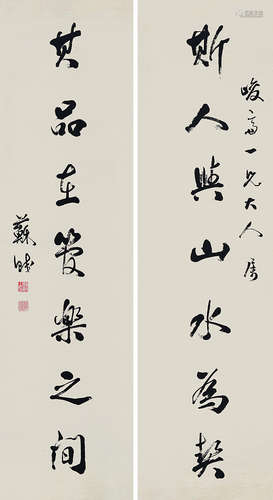 峻齋一兄大人屬
斯人與山水為契
其品在管樂之間
蘇